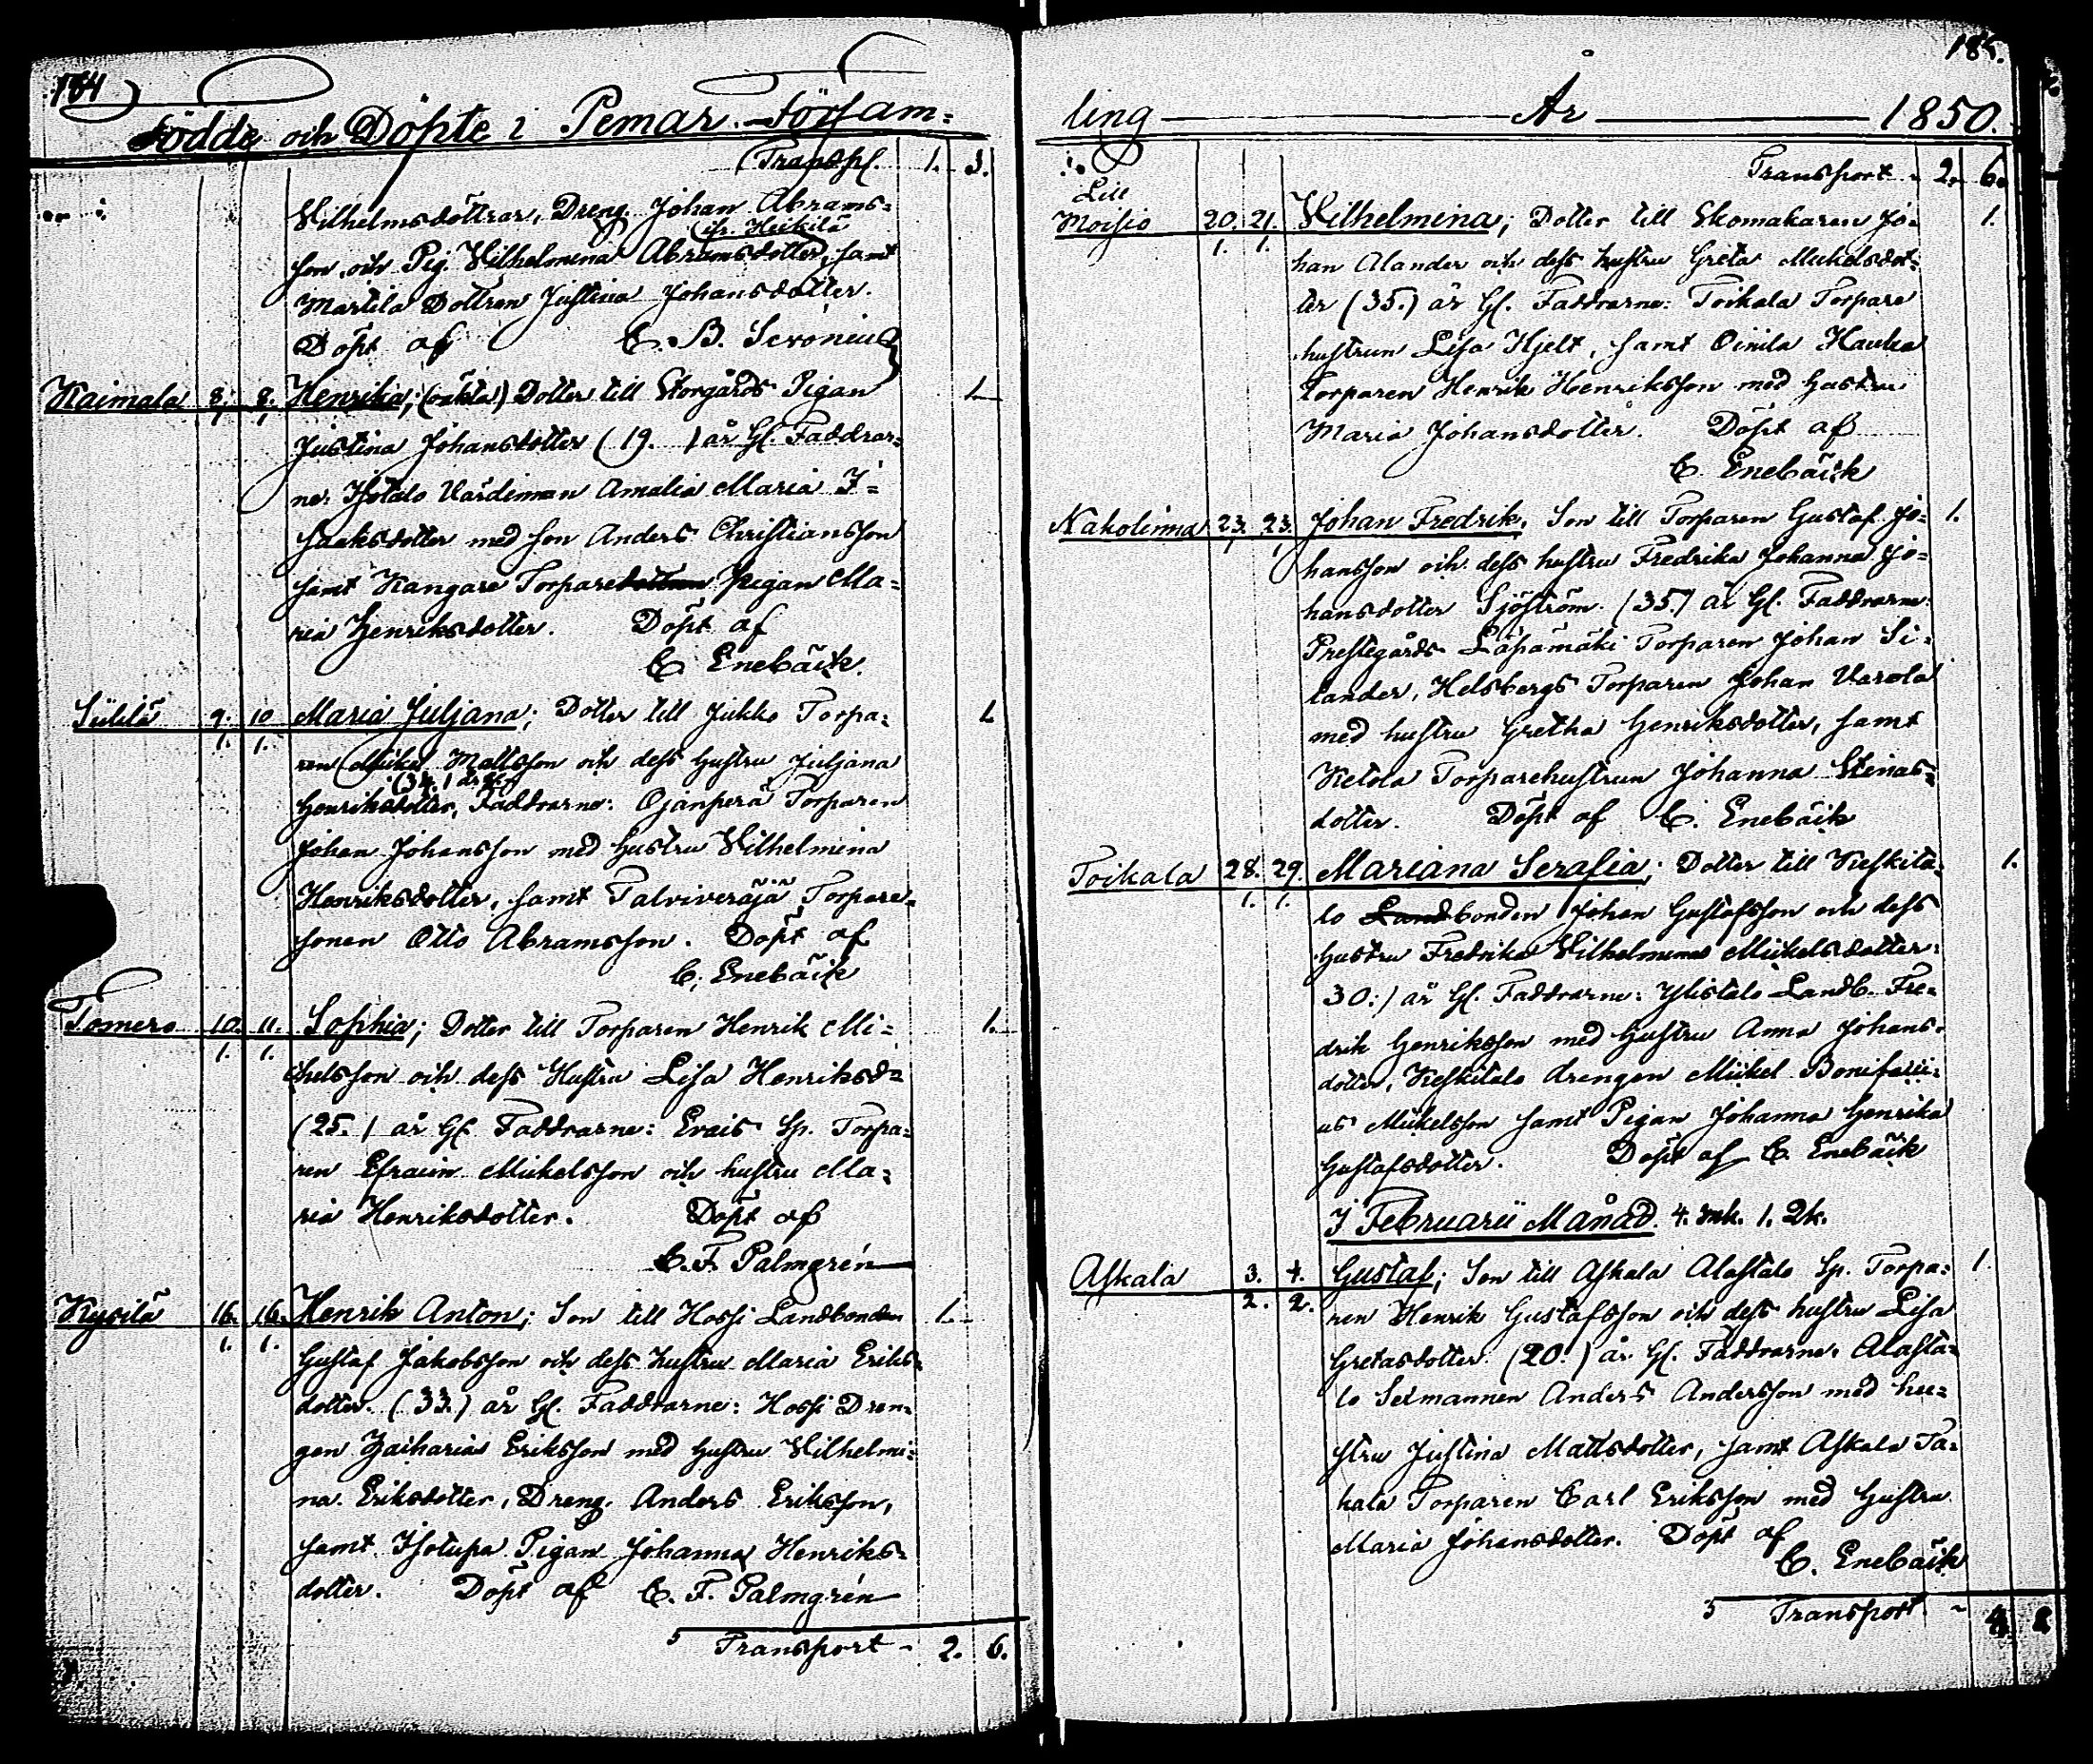 184
Födde och Döpte i Pemar Försam=
Transp. 1. 3.
Wilhelmsdöttrar, Dreng. Johan Abrams=
ifr. Heikilä
son, och Pig. Wilhelmina Abramsdotter, samt
Martila Dottren Justina Johansdotter.
Döpt af C. B. Seronius
Kaimala 8. 8. Henrika; (oäkta) Dotter till Storgårds Pigan 1.
1. 1. Justina Johansdotter (19.) år Gl. Faddrar=
ne: Isotalo Värdinnan Amalia Maria I=
saaksdotter med son Anders Christiansson
samt Kangare Torpare Pigan Ma=
ria Henriksdotter. Döpt af
C. Enebäck.
9. 10 Maria Juljana; Dotter till Jukko Torpa= 1.
1. 1. ren Mickel Mattsson och dess Hustru Juljana
(34.) år Gl.
Henriksdotter, Faddrarne: Ojanperä Torparen
Johan Johansson med Hustru Wilhelmina
Henriksdotter, samt Talviveräjä Torpare=
sonen Otto Abramsson. Döpt af
C. Enebäck
Tomero 10. 11. Sophia; Dotter till Torparen Henrik Mi= 1.
1. 1. chelsson och dess Hustru Lisa Henriksd=
(25.) år Gl. Faddrarne: Evais Sp. Torpa=
ren Efraim Mickelsson och hustru Ma=
ria Henriksdotter. Döpt af
C. F. Palmgrén
Kyvilä 16. 16. Henrik Anton; Son till Hossi Landbonden 1.
1. 1. Gustaf Jakobsson och dess hustru Maria Eriks=
dotter. (33.) år Gl. Faddrarne: Hossi Dren=
gen Zacharias Eriksson med Hustru Wilhelmi=
na Eriksdotter, Dreng. Anders Eriksson,
samt Isotupa Pigan Johanna Henriks=
dotter. Döpt af C. F. Palmgrén
Transport - 2. 6.
185.
ling År 1850.
Transport - 2. 6.
Lill
Moisio 20. 21. Wilhelmina; Dotter till Skomakaren Jo= 1.
1. 1. han Alander och dess hustru Greta Mickelsdot=
ter (35.) år Gl. Faddrarne: Toikala Torpare
hustrun Lisa Hjelt, samt Oinila Hauka
Torparen Henrik Henriksson med Hustru
Maria Johansdotter. Döpt af
C. Enebäck
Nakolinna 23. 23. Johan Fredrik. Son till Torparen Gustaf Jo= 1.
1. 1. hansson och dess hustru Fredrika Johanna Jo=
hansdotter Sjöström. (35.) år Gl. Faddrarne:
Prestegårds Läpämäki Torparen Johan Si=
lander, Helsbergs Torparen Johan Varola
med hustru Gretha Henriksdotter, samt
Ketola Torparehustrun Johanna Stinas=
dotter. Döpt af C. Enebäck
Toikala 28. 29. Mariana Serafia; Dotter till Keskita= 1.
1. 1. lo Landbonden Johan Gustafsson och dess
Hustru Fredrika Wilhelmina Mickelsdotter:
30:) år Gl. Faddrarne: Ylistalo Landb. Fre=
drik Henriksson med Hustru Anna Johans=
dotter, Keskitalo drengen Mickel Bonifacii=
us Mickelsson samt Pigan Johanna Henrika
Gustafsdotter. Döpt af C. Enebäck
I Februarii Månad. 4. mk. 1. Qk.
Askala 3. 4. Gustaf; Son till Askala Alastalo Sp. Torpa= 1
2. 2. ren Henrik Gustafsson och dess hustru Lisa
Gretasdotter. (20.) år Gl. Faddrarne: Alasta=
lo Selmannen Anders Andersson med hu=
stru Justina Mattsdotter, samt Askala Ta=
kala Torparen Carl Eriksson med Hustru
Maria Johansdotter. Döpt af
C. Enebäck
Transport. - 4 8